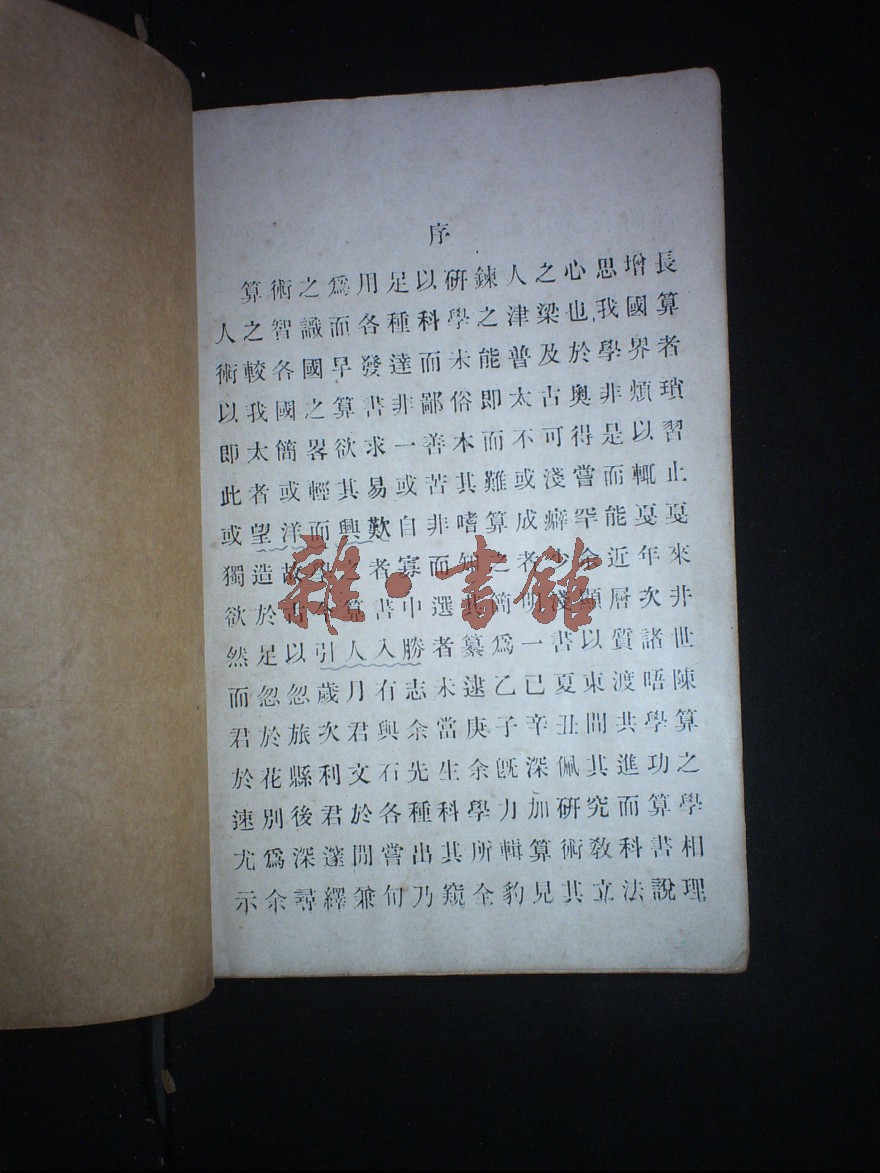 序
算術之爲用足以硏鍊人之心思增長
人之智識而各種科學之津梁也我國算
術較各國早發達而未能普及於學界者
以我國之算書非鄙俗即太古奧非煩瑣
即太簡畧欲求一善本而不可得是以習
此者或輕其易或苦其難或淺嘗而輒止
或望洋而興歎自非嗜算成癖罕能戛戛
獨造故學之者寡而知之者少余近年來
欲於古今算書中選其簡明淺顯層次非
然足以引人入勝者纂爲一書以質諸世
而忽忽歲月有志未逮乙巳夏東渡晤陳
君於旅次君與余當庚子辛丑間共學算
於花縣利文石先生余旣深佩其進功之
速別後君於各種科學力加硏究而算學
尤爲深邃間嘗出其所輯算術敎科書相
示余尋繹兼旬乃窺全豹見其立法說理
雜·書館